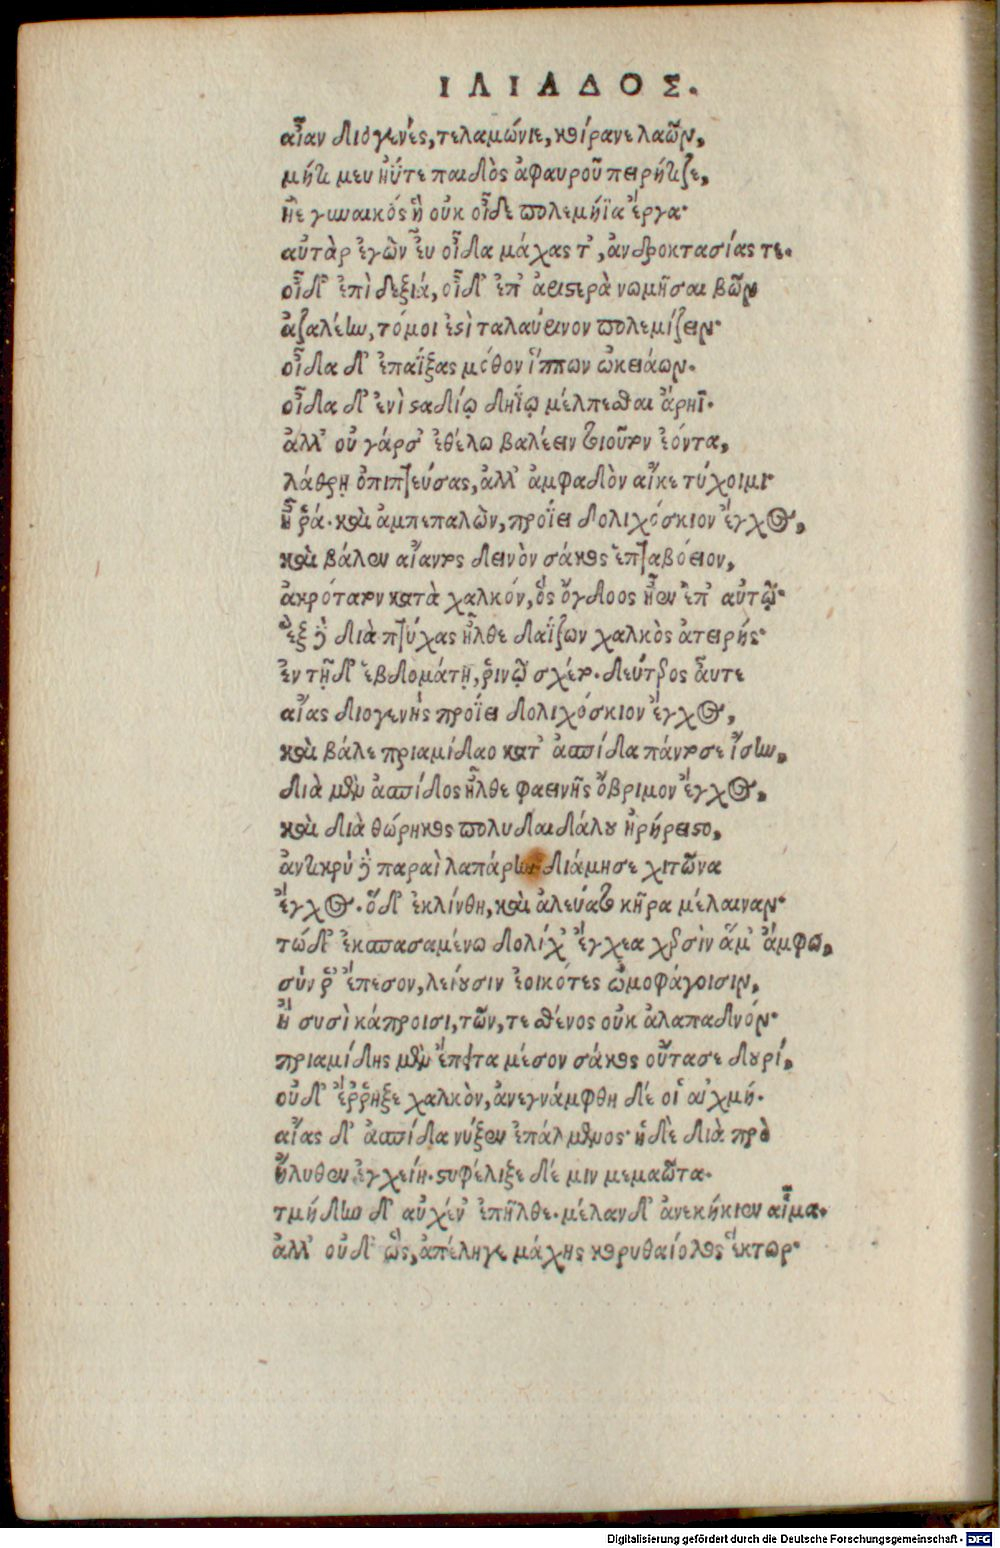 ΙΛΙΑΔΟΣ.
αἶαν διογενὲς, τελαμώνιε, κοίρανε λαῶν,
μήτι μευ ἠΰτε παιδὸς ἀφαυροῦ πειρήτιζε,
ἠὲ γυναικός ἣ οὐκ οἶδε πολεμήϊα ἔργα·
αὐτὰρ ἐγὼν εὖ οἶδα μάχας τ', ἀνδροκτασίας τε.
οἶδ' ἐπὶ δεξιά, οἶδ' ἐπ' ἀριστερὰ νωμῆσαι βῶν
ἀζαλέην, τόμοι ἐστὶ ταλαύρινον πολεμίζειν·
οἶδα δ' ἐπαΐξας μόθον ἵππων ὠκειάων.
οἶδα δ' ἐνὶ σταδίῳ δηΐῳ μέλπεσθαι ἄρηϊ.
ἀλλ' οὐ γάρσ' ἐθέλω βαλέειν τοιοῦτον ἐόντα,
λάθρῃ ὀπιπτεύσας, ἀλλ' ἀμφαδὸν αἴκε τύχοιμι
ἦ ῥά. καὶ ἀμπεπαλὼν, προΐει δολιχόσκιον ἔγχος,
καὶ βάλεν αἴαντος δεινὸν σάκος ἑπταβόειον,
ἀκρότατον κατὰ χαλκόν, ὃς ὄγδοος ἦεν ἐπ' αὐτῷ·
ἓξ δὲ διὰ πτύχας ἦλθε δαΐζων χαλκὸς ἀτειρής·
ἐν τῇ δ' ἑβδομάτῃ, ῥινῷ σχέτο. δεύτερος αὖτε
αἴας διογενὴς προΐει δολιχόσκιον ἔγχος,
καὶ βάλε πριαμίδαο κατ' ἀσπίδα πάντοσε ἴσην,
διὰ μὲν ἀσπίδος ἦλθε φαεινῆς ὄβριμον ἔγχος,
καὶ διὰ θώρηκος πολυδαιδάλου ἠρήρειστο,
ἀντικρὺ δὲ παραὶ λαπάρην διάμησε χιτῶνα
ἔγχος. ὅδ' ἐκλίνθη, καὶ ἀλεύατο κῆρα μέλαιναν·
τώδ' ἐκσπασαμένω δολίχ' ἔγχεα χερσὶν ἅμ' ἄμφω,
σύν ῥ' ἔπεσον, λείουσιν ἐοικότες ὠμοφάγοισιν,
ἢ συσὶ κάπροισι, τῶν, τε σθένος οὐκ ἀλαπαδνόν·
πριαμίδης μὲν ἔπειτα μέσον σάκος οὔτασε δουρί,
οὐδ' ἔῤῥηξε χαλκὸν, ἀνεγνάμφθη δέ οἱ αἰχμή.
αἴας δ' ἀσπίδα νύξεν ἐπάλμενος· ἡ δὲ διὰ πρὸ
ἤλυθεν ἐγχείη. στυφέλιξε δέ μιν μεμαῶτα.
τμήδην δ' αὐχέν' ἐπῆλθε. μέλαν δ' ἀνεκήκιεν αἷμα.
ἀλλ' οὐδ' ὣς, ἀπέληγε μάχης κορυθαίολος ἕκτωρ·
Digitalisierung gefördert durch die Deutsche Forschungsgemeinschaft - DFG